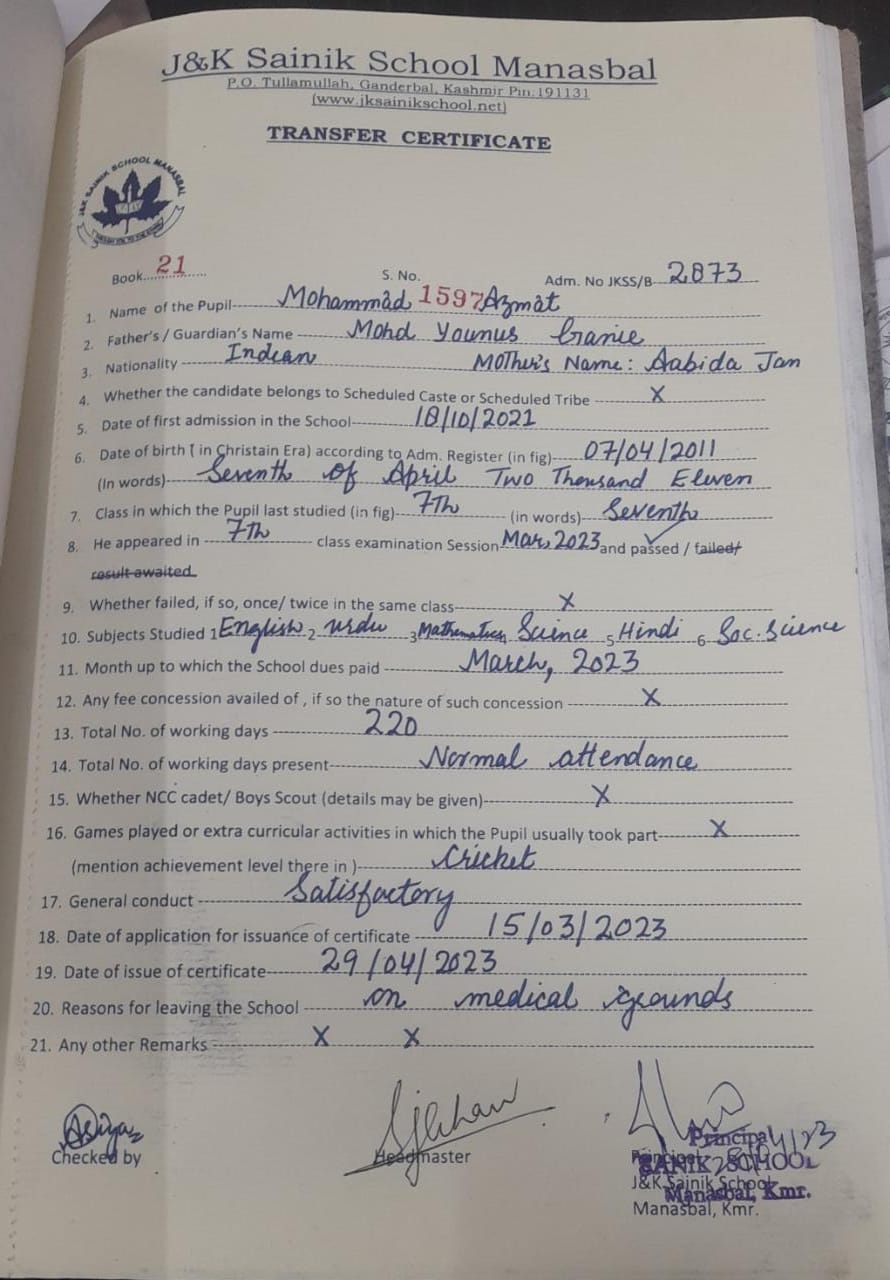 J&K Sainik School Manasbal
P.O. Tullamullah, Ganderbal, Kashmir Pin:191131
(www.jksainikschool.net)
TRANSFER CERTIFICATE
J&K SAINIK SCHOOL MANASBAL
Book 21 S. No. Adm. No JKSS/B 2873
1. Name of the Pupil Mohammad 1597 Azmat
2. Father's / Guardian's Name Mohd Younus Ganie
3. Nationality Indian Mother's Name: Aabida Jan
4. Whether the candidate belongs to Scheduled Caste or Scheduled Tribe X
5. Date of first admission in the School 18/10/2021
6. Date of birth ( in Christain Era) according to Adm. Register (in fig) 07/04/2011
(In words) Seventh of April Two Thousand Eleven
7. Class in which the Pupil last studied (in fig) 7th (in words) Seventh
8. He appeared in 7th class examination Session Mar, 2023 and passed / failed/
result awaited
9. Whether failed, if so, once/ twice in the same class X
10. Subjects Studied 1 English 2 Urdu 3 Mathematics Science 5 Hindi 6 Soc. Science
11. Month up to which the School dues paid March, 2023
12. Any fee concession availed of , if so the nature of such concession X
13. Total No. of working days 220
14. Total No. of working days present Normal attendance
15. Whether NCC cadet/ Boys Scout (details may be given) X
16. Games played or extra curricular activities in which the Pupil usually took part X
(mention achievement level there in ) Cricket
17. General conduct Satisfactory
18. Date of application for issuance of certificate 15/03/2023
19. Date of issue of certificate 29/04/2023
20. Reasons for leaving the School on medical grounds
21. Any other Remarks X X
Checked by Headmaster Principal
Principal
SANIK SCHOOL
J&K Sainik School
Manasbal, Kmr.
Manasbal, Kmr.